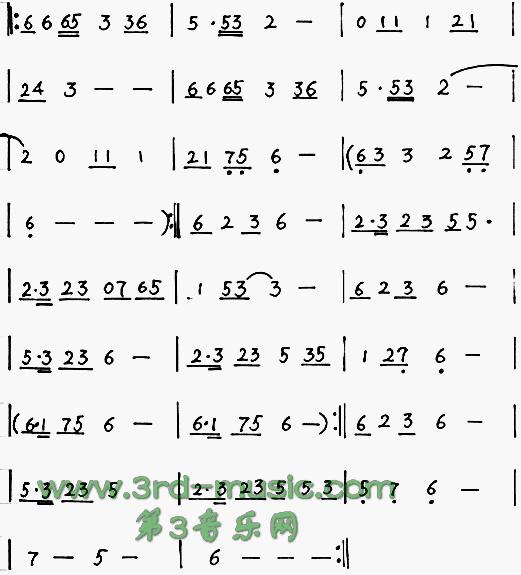 ‖: 6 6 65 3 36 | 5 · 53 2 — | 0 11 1 21 |
| 24 3 — — | 6 6 65 3 36 | 5 · 53 2 — |
| 2 0 11 1 | 21 75 6 — | (63 3 2 57 |
| 6 — — — ) :‖ 6 2 3 6 — | 2·3 23 55 · |
| 2·3 23 07 65 | 1 53 3 — | 6 2 3 6 — |
| 5·3 23 6 — | 2·3 23 5 35 | 1 27 6 — |
| (6·1 75 6 — | 6·1 75 6 —) :‖ 6 2 3 6 — |
| 5·3 23 5 | 2·3 23 5 5 3 | 5 7 6 — |
www.3rd-music.com
第3音乐网
| 7 — 5 — | 6 — — — :‖